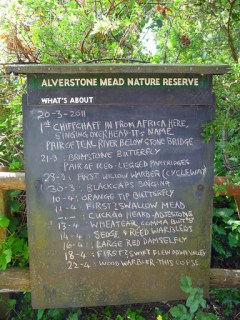 ALVERSTONE MEAD NATURE RESERVE
WHAT'S ABOUT
20-3-2011
1ST CHIFFCHAFF IN FROM AFRICA HERE,
SINGING OVERHEAD IT'S NAME
PAIR OF TEAL RIVER BELOW STONE BRIDGE
21-3 BRIMSTONE BUTTERFLY
PAIR OF RED-LEGGED PARTRIDGES
28-3. FIRST WILLOW WARBER (CYCLEWAY)
30-3. BLACKCAPS SINGING
10-4: ORANGE TIP BUTTERFLY
11-4: FIRST? SWALLOW MEAD
CUCKOO HEARD-
13-4. WHEATEAR, COMMA BUTT'S
14-4. SEDGE & REED WARBLERS
16-4. LARGE RED DAMSELFLY
18-4: FIRST? SWIFT FLEW DOWN VALLEY
22-4: WOOD WARBLER THIS COPSE